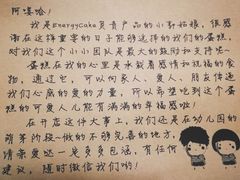 阿嘻哈！
我是EnergyCake负责产品的小郭姑娘，很感
谢在这样重要的日子能够选择的我们的蛋糕，
对我们这个小小团队是最大的鼓励和支持呢～
蛋糕在我的心里是承载着感情和祝福的
食物，通过它，可以向家人、爱人、朋友传递
我们心底的爱的力量，所以希望吃到这个蛋
糕的可爱人儿能有满满的幸福感啦！
在开店这件大事上，我们还是在幼儿园的
萌芽阶段～做的不够完善的地方，
请亲爱哒一定多多包涵，有任何
建议，随时微信我们哟！